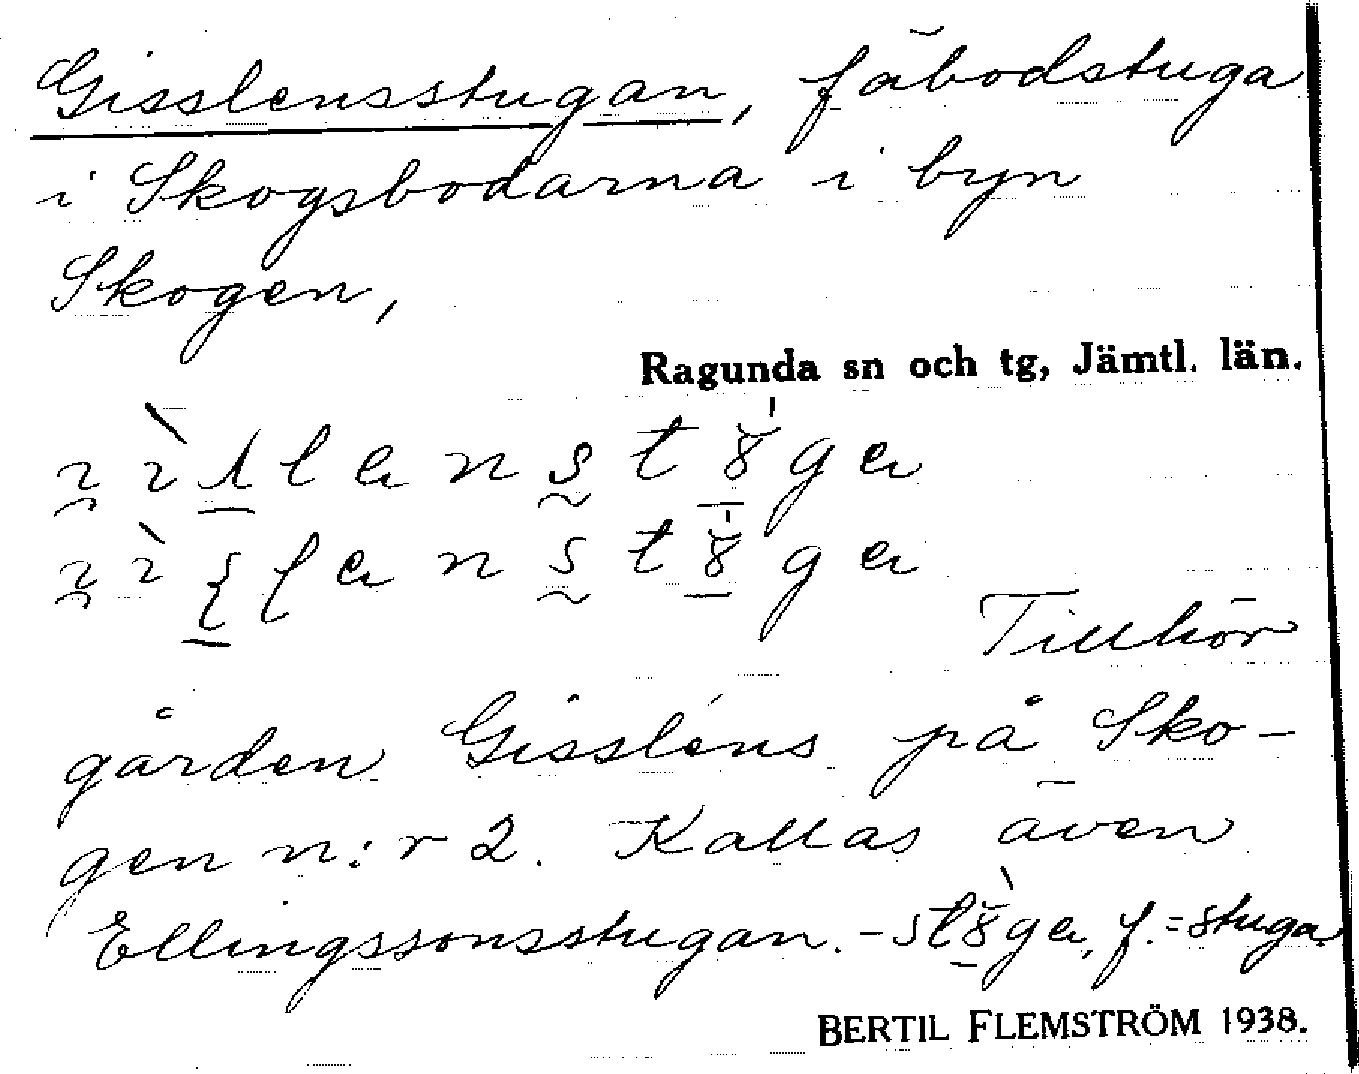 Gisslensstugan, fäbodstuga
i Skogsbodarna i byn
Skogen,
Ragunda sn och tg, Jämtl. län.
Tillhör
gården Gissléns på Sko-
gen n:r 2. Kallas även
Ellingssonsstugan. f. = stuga
BERTIL FLEMSTRÖM 1938.